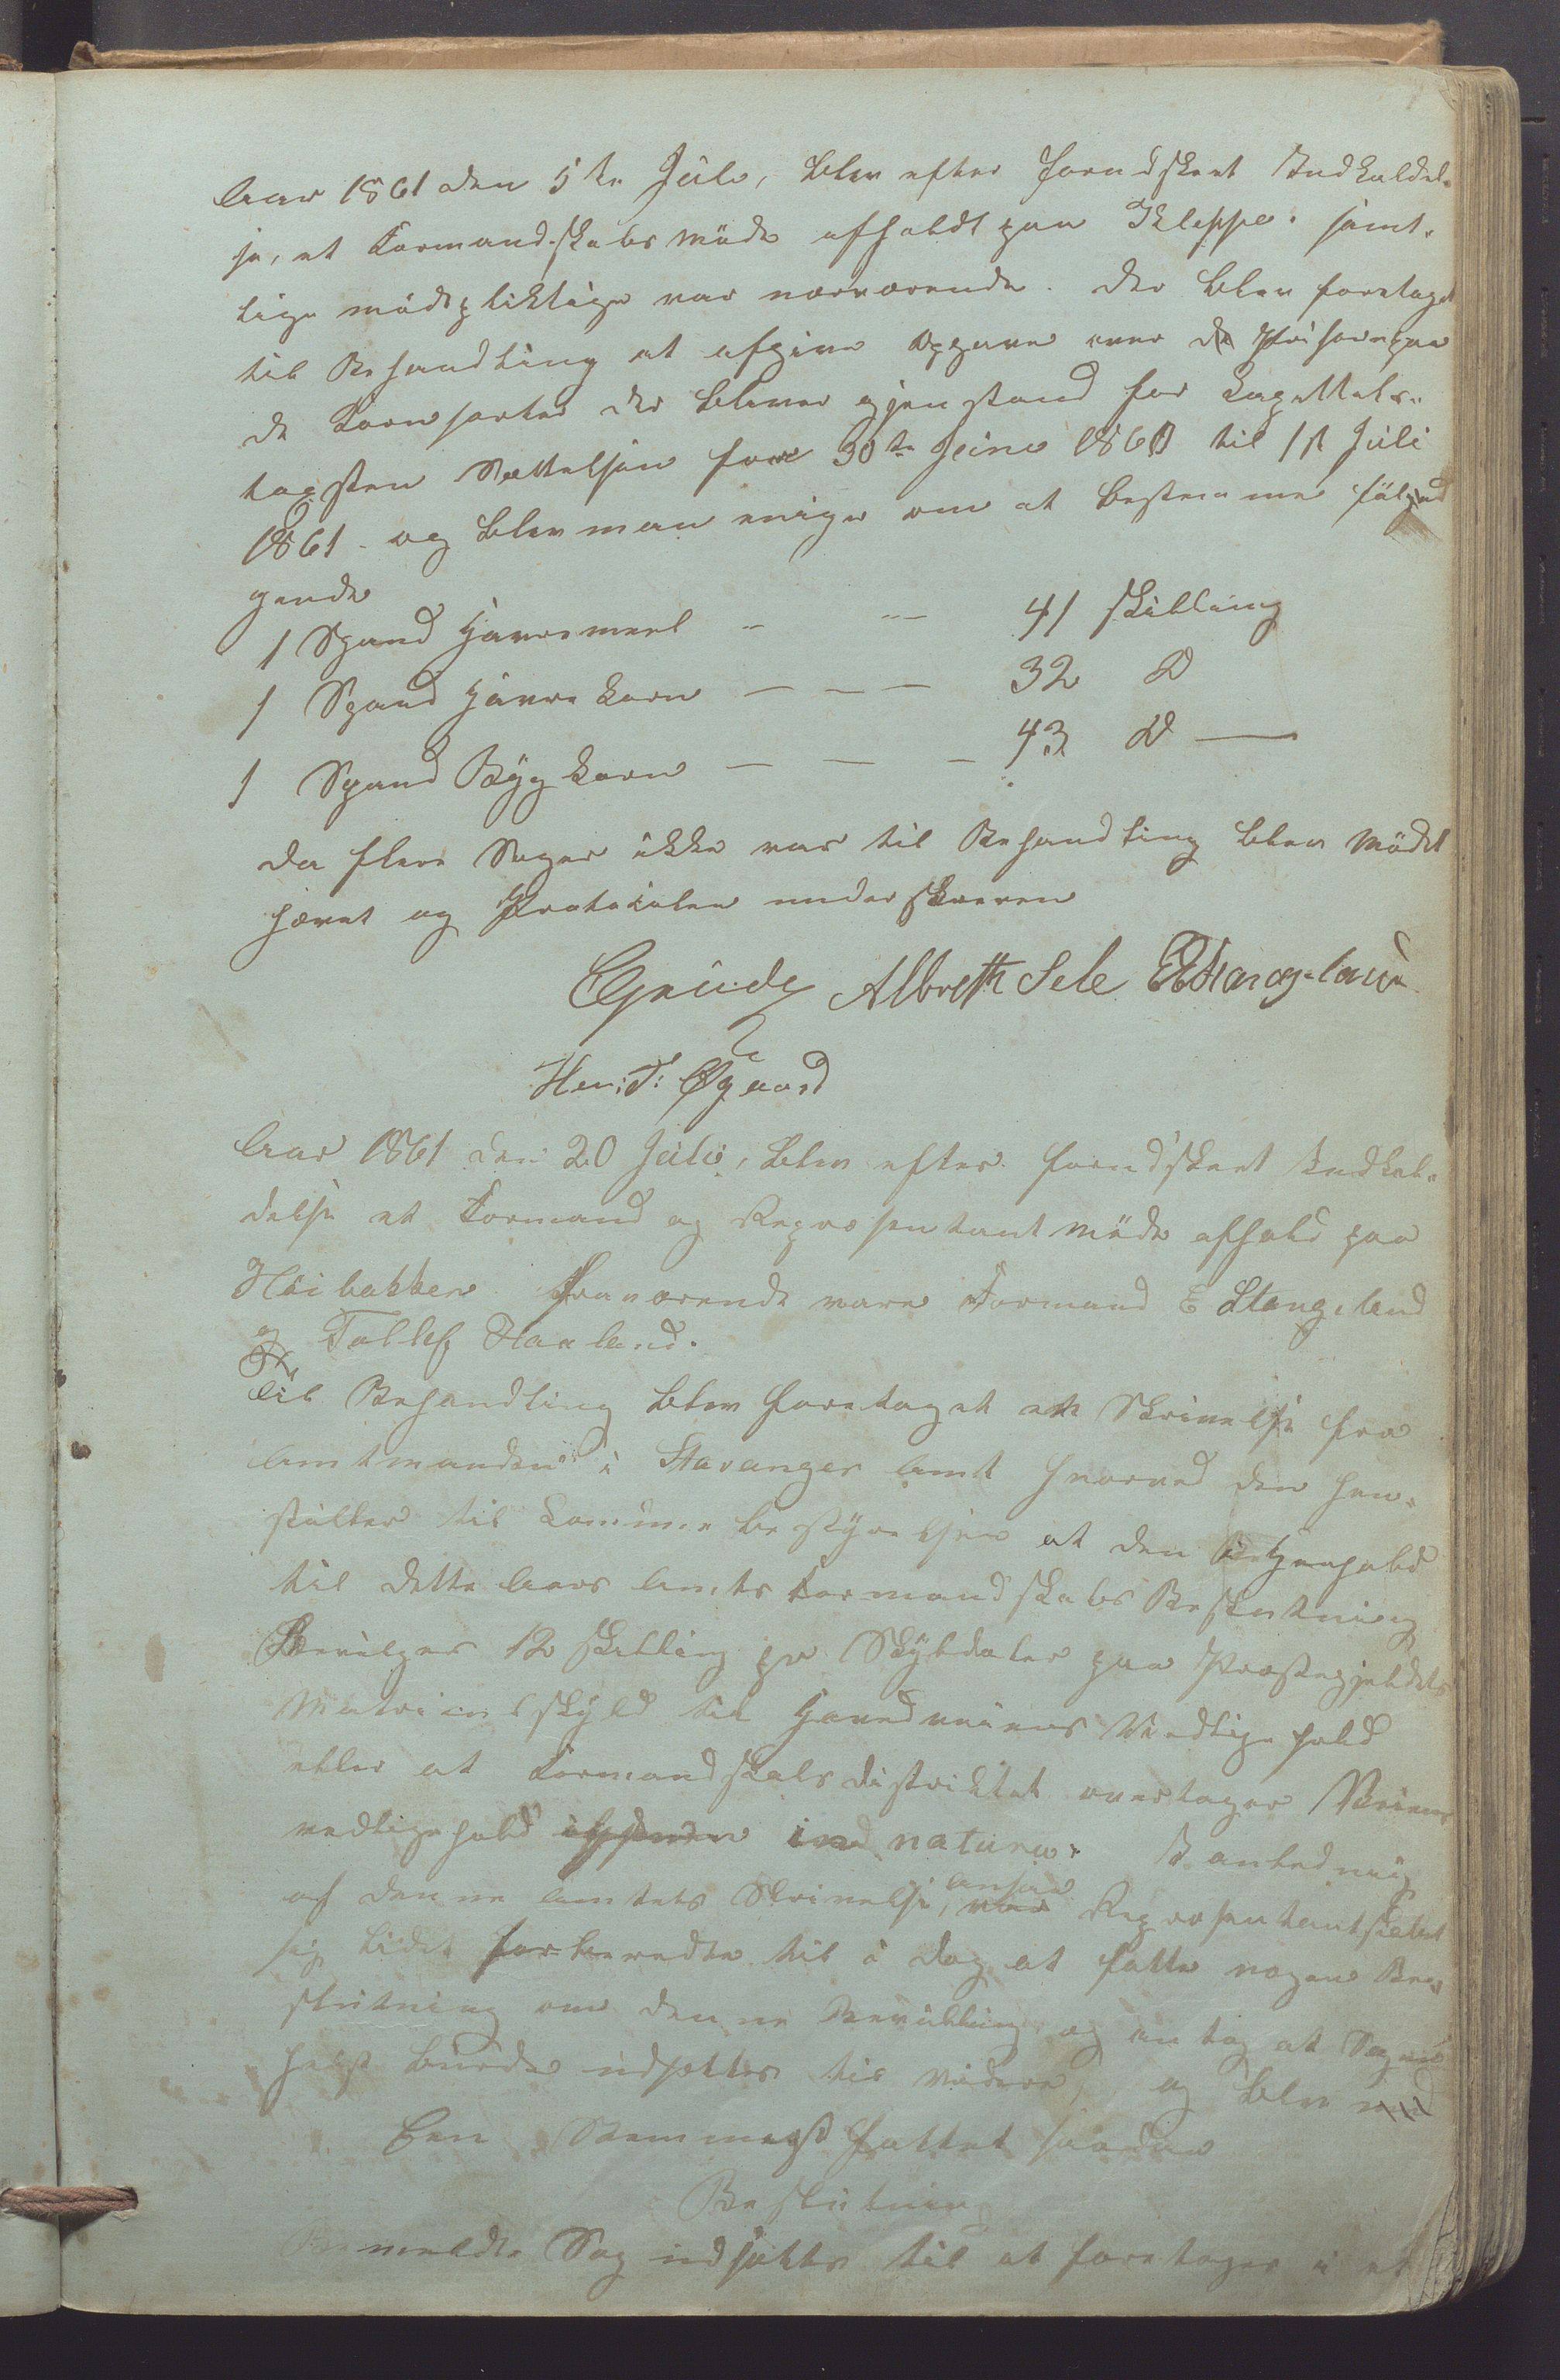 Aar 1861 den 5te Juli, blev efter forudskeet Indkaldel-
se, et Formandskabs Møde afholdt paa Kleppe. samt-
lige mødepliktige var nærværende. Der blev foretaget
til Behandling at afgive Opgave over de Priser paa
de Kornsorter der bliver gjenstand for Kapitels-
taxsten Sættelsen fra 30te Juni 1860 til 1st Juli
1861 - og blev man enige om at bestemme føl
gende
1 Spand Havremeel - -- 41 skilling
1 Spand Havre korn - - - 32 D
1 Spand Byg korn - - - 43 D -
Da flere Sager ikke var til Behandling blev Mødet
hævet og Protocolen underskreven
Grude Albreth Sele E Stangeland
Hen: T: Øgaard
Aar 1861 den 20 Juli, blev efter forudskeet Indkal-
delse et Formand og Repræsentant møde afhold paa
Høibakken. Fraværende vare Formand E Stangeland
og Tollef Haaland.
Til Behandling blev foretaget en Skrivelse fra
Amtmanden i Stavanger Amt hvorved den hen-
stiller til Commune bestyrelsen at den i Henhold
til dette Aars Amts Formandskabs Beslutning
Bevilger 12 skilling pr Skylddaler paa Præstegjeldets
Matricul skyld til Hovedveienes Vedligehold
eller at Formandskabs distriktet overtager Veienes
vedligehold ind natura. I anledning
af denne Amtets Skrivelse, ansaa Repræsentantskabet
sig lidet forberedte til i dag at fatte nogen Be-
slutning om denne Bevilling og antog at Sagen
helst burde udsættes til videre, og blev
Een Stemmigst fattet saadan
Beslutning
Bemeldte Sag udsættes til at foretages i et